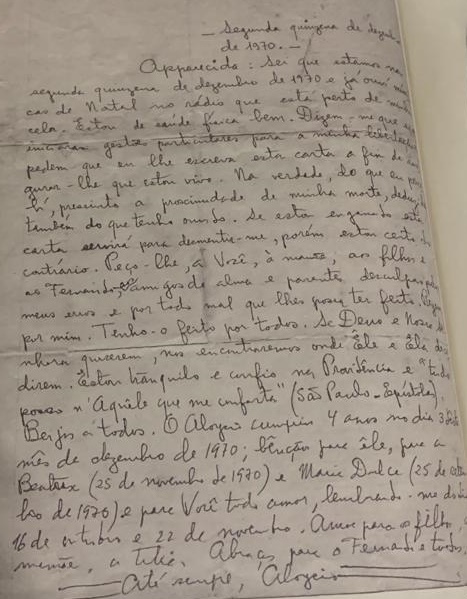 — Segunda quinzena de dezembro
de 1970. —
Apparecida: Sei que estamos na
segunda quinzena de dezembro de 1970 e já ouvi músi
cas de Natal no rádio que está perto de minha
cela. Estou de saúde física bem. Dizem-me que se
iniciaram gestões particulares para a minha libertação e
pedem que eu lhe escreva esta carta a fim de asse
gurar-lhe que estou vivo. Na verdade, do que eu
vi, pressinto a proximidade de minha morte, deduzo
também do que tenho ouvido. Se estou enganado esta
carta servirá para desmentir-me, porém estou certo do
contrário. Peço-lhe, a Você, à mamãe, aos filhos e
ao Fernando, amigos de alma e parentes desculpas pelos
meus erros e por todo mal que lhes possa ter feito. Rezem
por mim. Tenho-o feito por todos. Se Deus e Nossa Se
nhora quiserem, nos encontraremos onde Êle e Ela de
cidirem. Estou tranquilo e confio na Providência e "tudo
posso n'Aquele que me conforta" (São Paulo - Epístola).
Beijos a todos. O Aloysio cumpriu 4 anos no dia 3 dêste
mês de dezembro de 1970; bênção para êle, para a
Beatriz (25 de novembro de 1970) e Maria Dulce (25 de outu
bro de 1970) e para Você todo amor, lembrando-me do dia
16 de outubro e 22 de novembro. Amor para os filhos,
mamãe, a Titié. Abraços para o Fernando e todos.
Até sempre, Aloysio